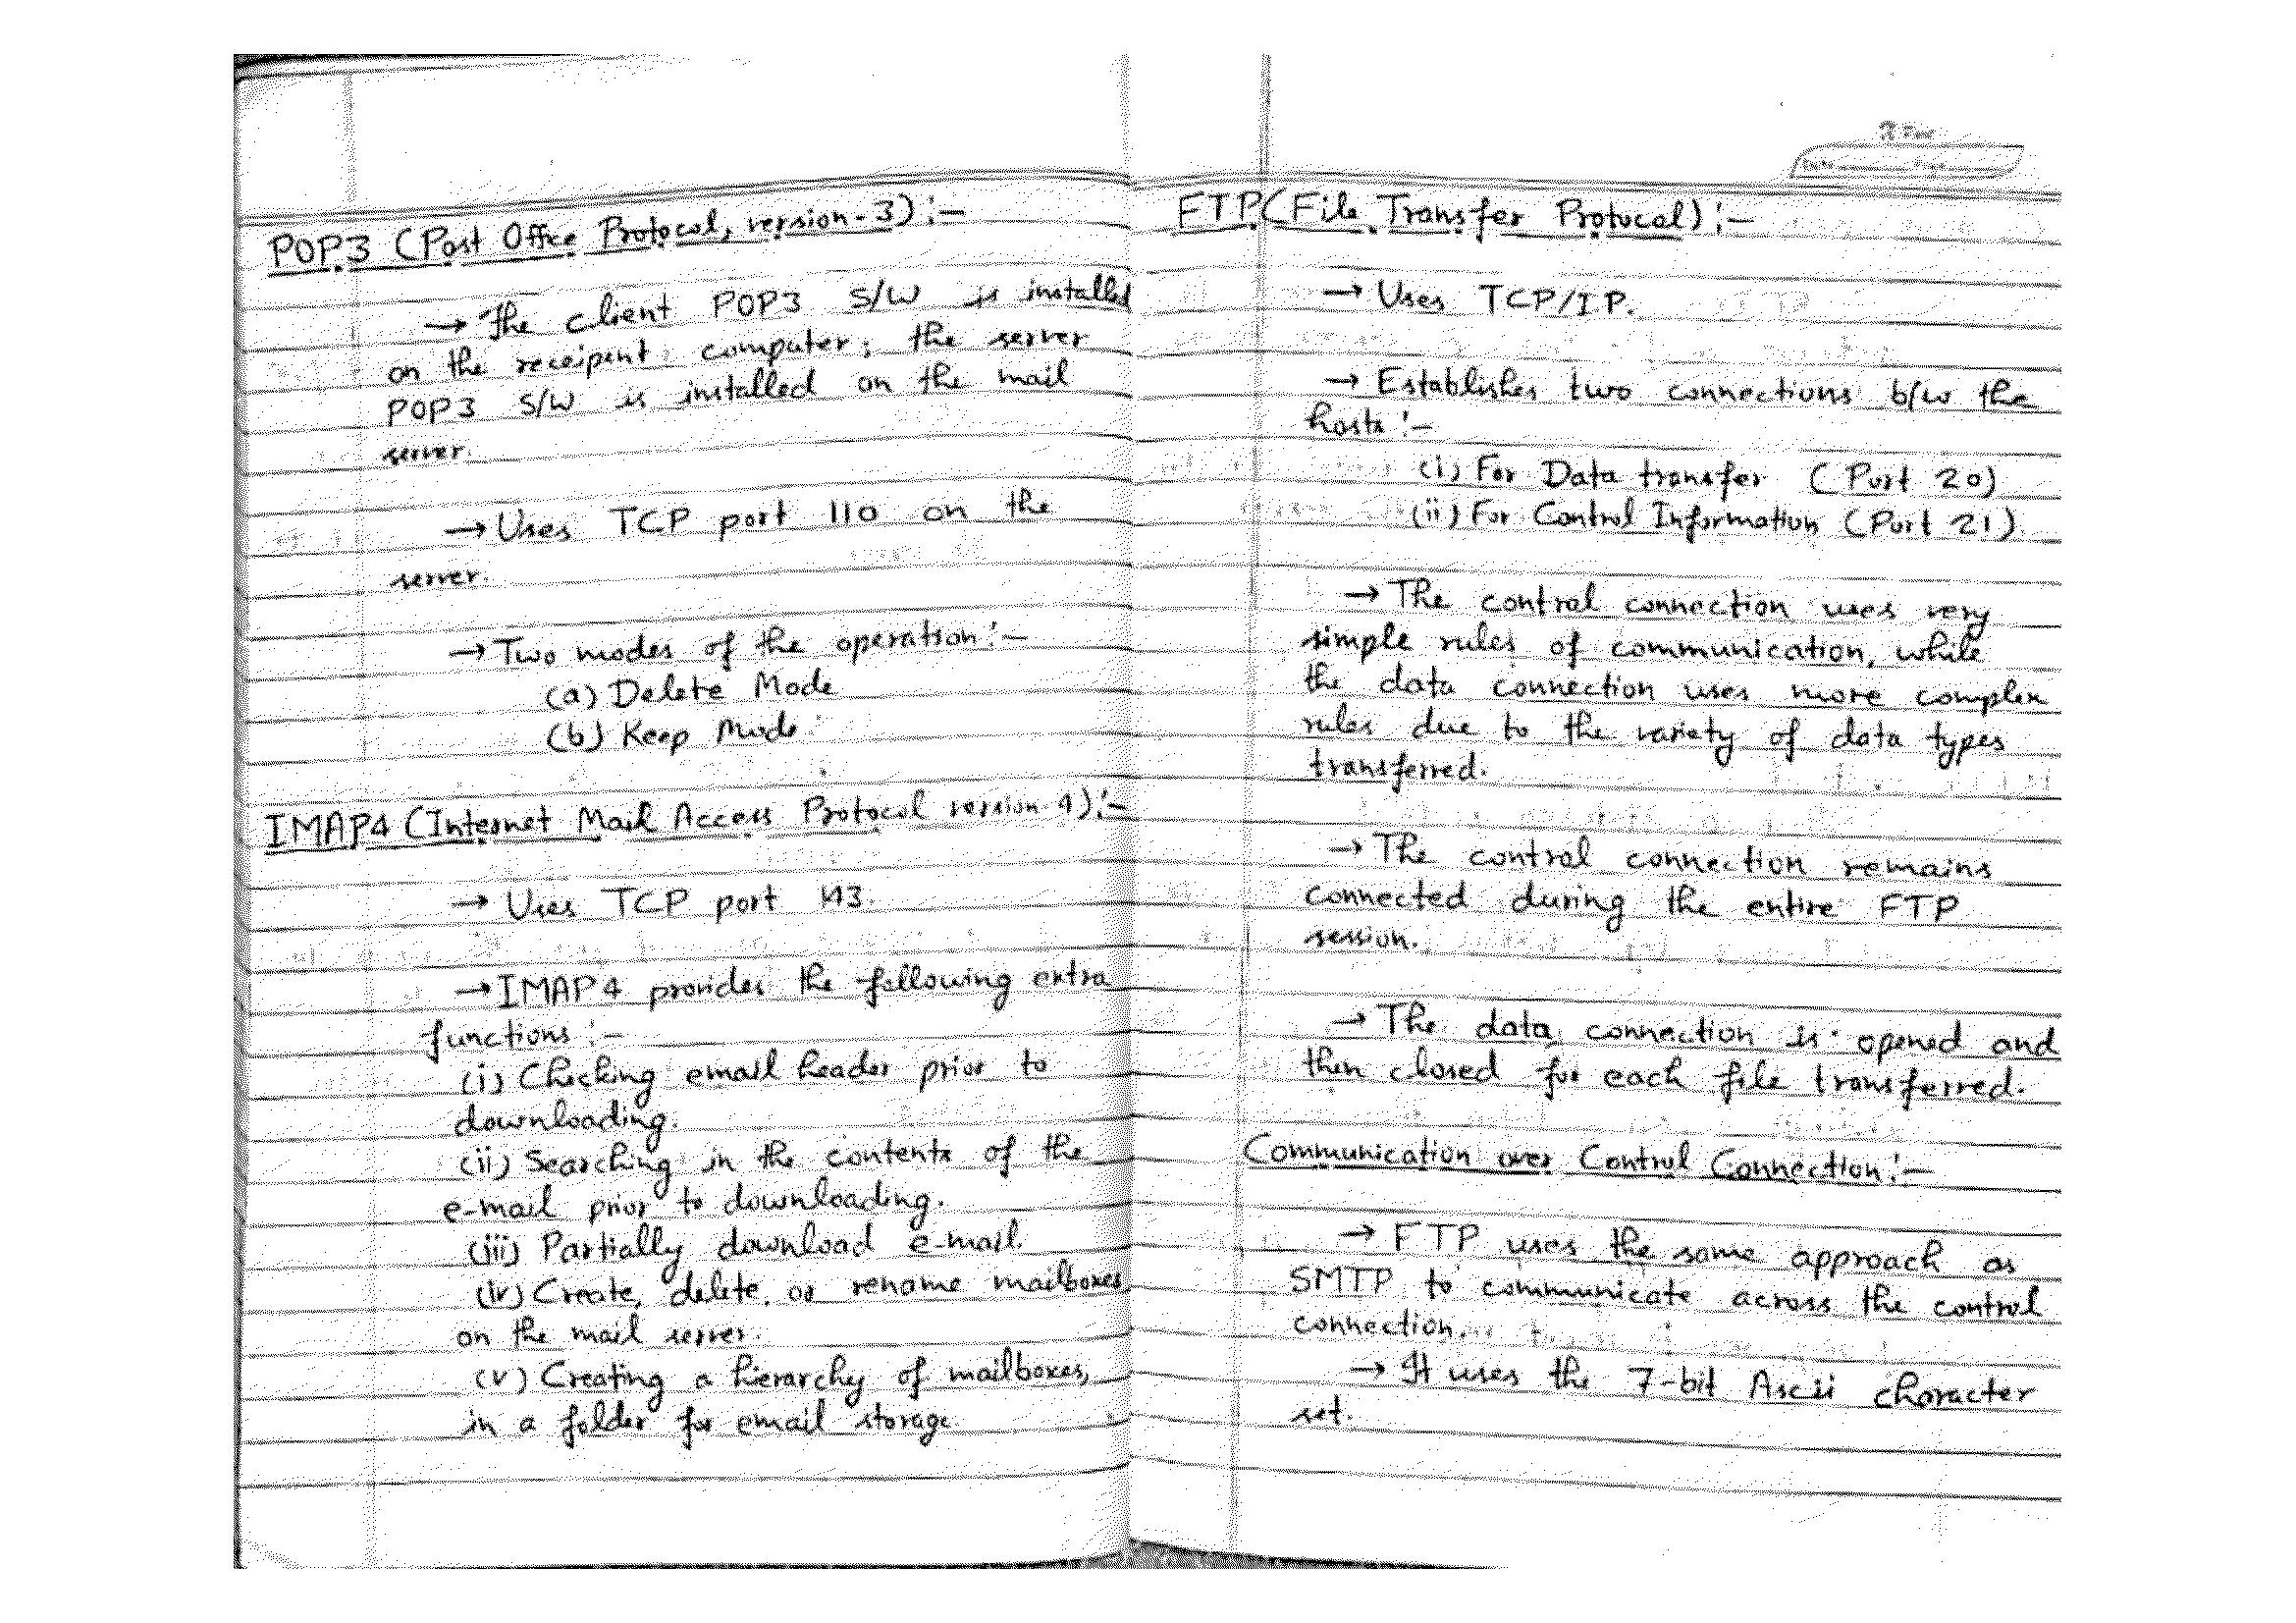 POP3 (Post Office Protocol, version-3):-
→ The client POP3 S/W is installed
on the receipent computer; the server
POP3 S/W is installed on the mail
server.
→ Uses TCP port 110 on the
server.
→ Two modes of the operation:-
(a) Delete Mode
(b) Keep Mode
IMAP4 (Internet Mail Access Protocol version 4):-
→ Uses TCP port 143.
→ IMAP4 provides the following extra
functions:-
(i) Checking email header prior to
downloading.
(ii) Searching in the contents of the
e-mail prior to downloading.
(iii) Partially download e-mail.
(iv) Create, delete, or rename mailboxes
on the mail server.
(v) Creating a hierarchy of mailboxes,
in a folder for email storage.
FTP (File Transfer Protocol):-
→ Uses TCP/IP.
→ Establishes two connections b/w the
hosts:-
(i) For Data transfer (Port 20)
(ii) For Control Information (Port 21).
→ The control connection uses very
simple rules of communication, while
the data connection uses more complex
rules due to the variety of data types
transferred.
→ The control connection remains
connected during the entire FTP
session.
→ The data connection is opened and
then closed for each file transferred.
Communication over Control Connection:-
→ FTP uses the same approach as
SMTP to communicate across the control
connection.
→ It uses the 7-bit Ascii character
set.